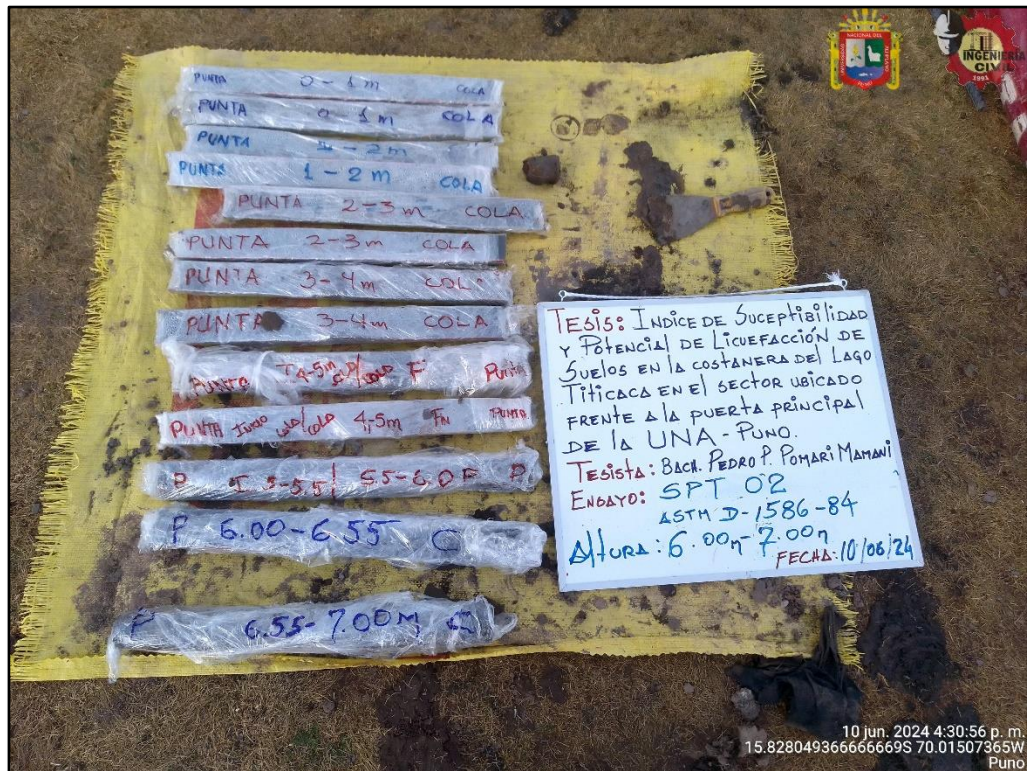 INGENIERÍA
CIVIL
1991
PUNTA 0-1m COLA
PUNTA 0-1m COLA
PUNTA 1-2m
PUNTA 1-2m COLA
PUNTA 2-3m COLA
PUNTA 2-3m COLA
PUNTA 3-4m COL
PUNTA 3-4m COLA
PUNTA 4-5m F Punta
PUNTA Inicio 4,5m FN PUNTA
P 5-5.5 5.5-6.0 F P
P 6.00-6.55 C
P 6.55-7.00M C
TESIS: INDICE DE SUCEPTIBILIDAD
Y POTENCIAL DE LICUEFACCIÓN DE
SUELOS EN LA COSTANERA DEL LAGO
TITICACA EN EL SECTOR UBICADO
FRENTE A LA PUERTA PRINCIPAL
DE LA UNA-PUNO.
TESISTA: BACH. PEDRO P. POMARI MAMANI
ENSAYO: SPT 02
ASTM D-1586-84
ALTURA: 6.00m-7.00m
FECHA: 10/06/24
10 jun. 2024 4:30:56 p. m.
15.828049366666669S 70.01507365W
Puno